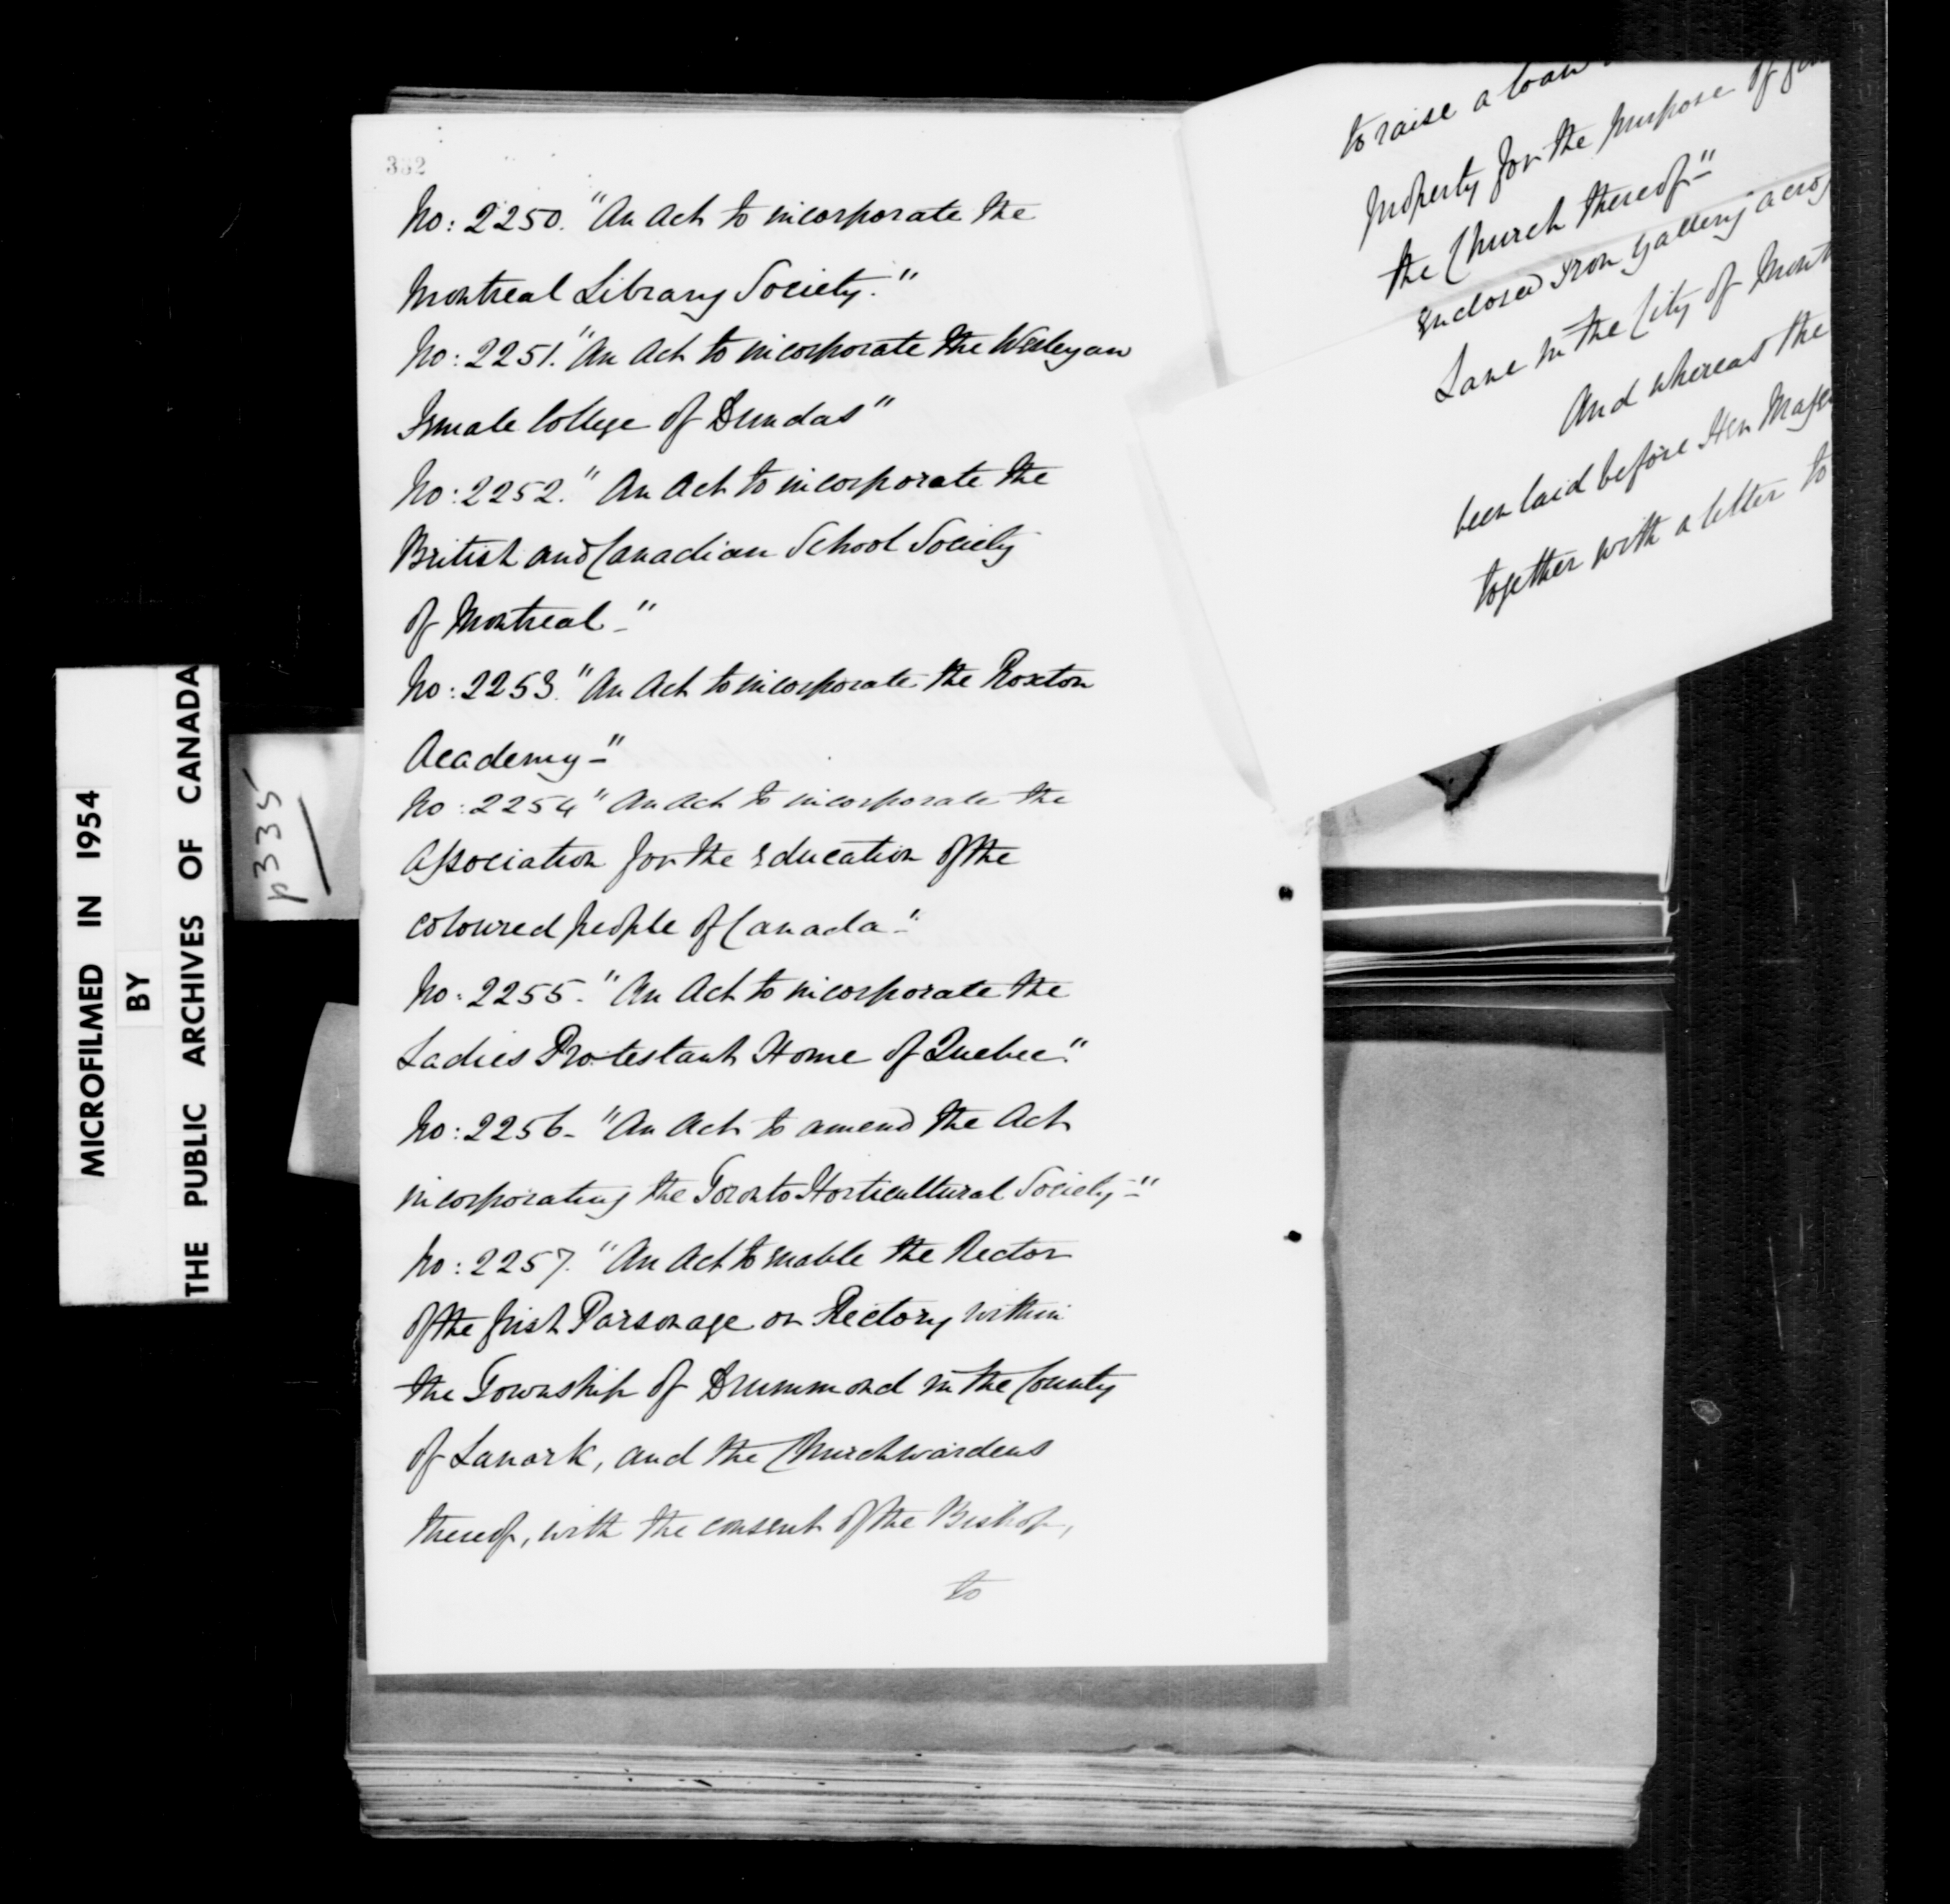 332
No: 2250. "An Act to incorporate the
Montreal Library Society."
No: 2251. "An Act to incorporate the Wesleyan
Female College of Dundas"
No: 2252. "An Act to incorporate the
British and Canadian School Society
of Montreal-"
No: 2253. "An Act to incorporate the Roxton
Academy-"
No: 2254 "An Act to incorporate the
Association for the Education of the
coloured people of Canada-"
No: 2255. "An Act to incorporate the
Ladies Protestant Home of Quebec."
No: 2256- "An Act to amend the Act
incorporating the Toronto Horticultural Society-"
No: 2257. "An Act to enable the Rector
of the first Parsonage or Rectory within
the Township of Drummond in the County
of Lanark, and the Churchwardens
thereof, with the consent of the Bishop,
to
to raise a loan
property for the purpose of
the Church thereof-"
enclosed Iron Gallery
Lane in the City of
And whereas the
been laid before Her
together with a letter to
p335
MICROFILMED IN 1954
BY
THE PUBLIC ARCHIVES OF CANADA